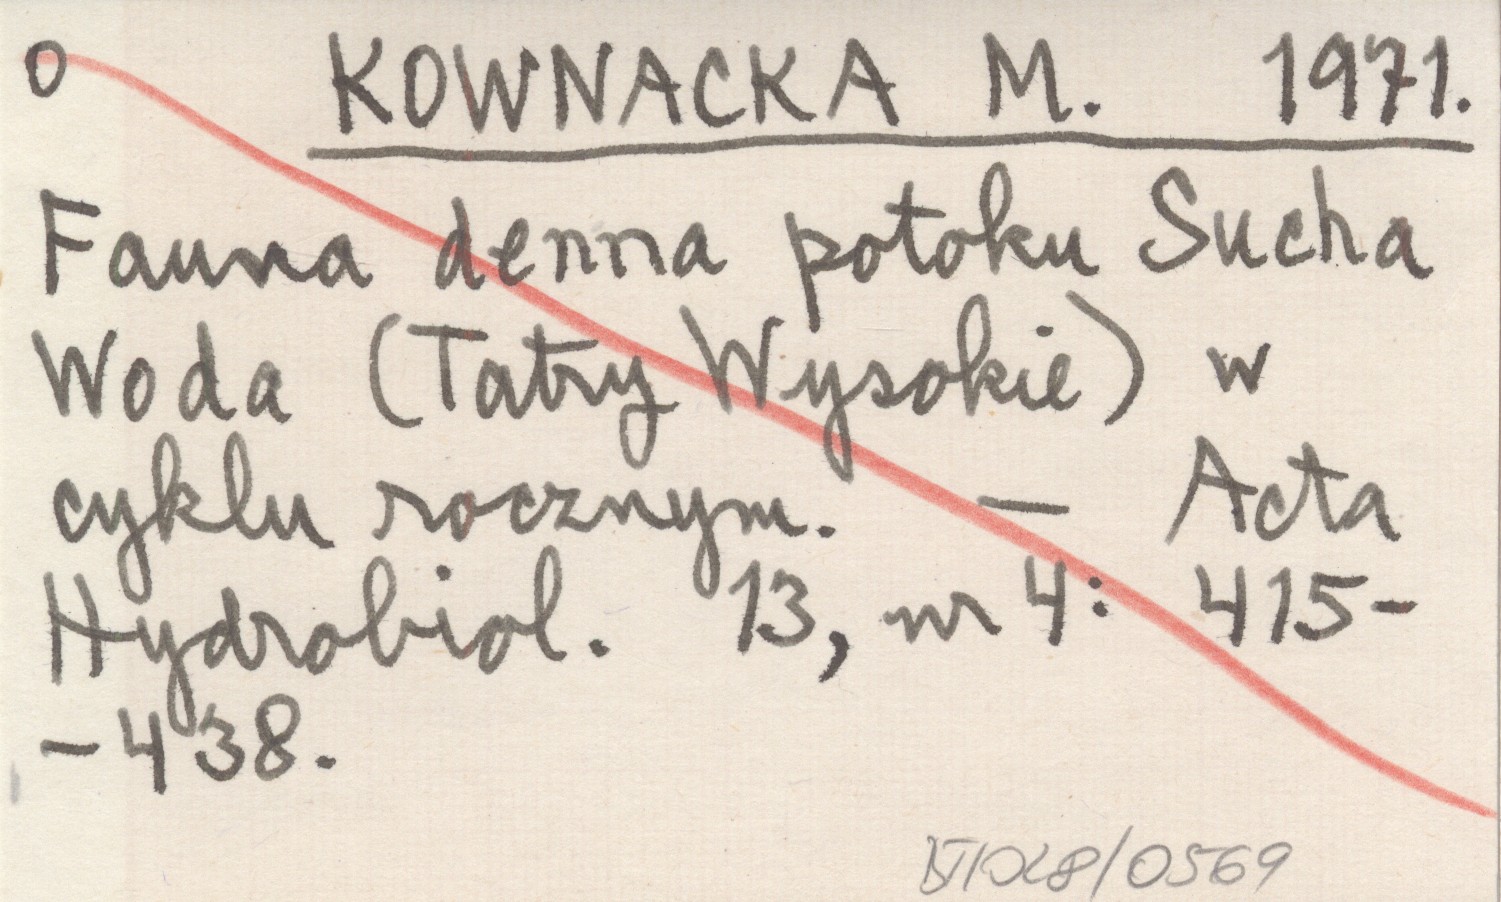 O KOWNACKA M. 1971.
Fauna denna potoku Sucha
Woda (Tatry Wysokie) w
cyklu rocznym. — Acta
Hydrobiol. 13, nr 4: 415-
-438.
/0569